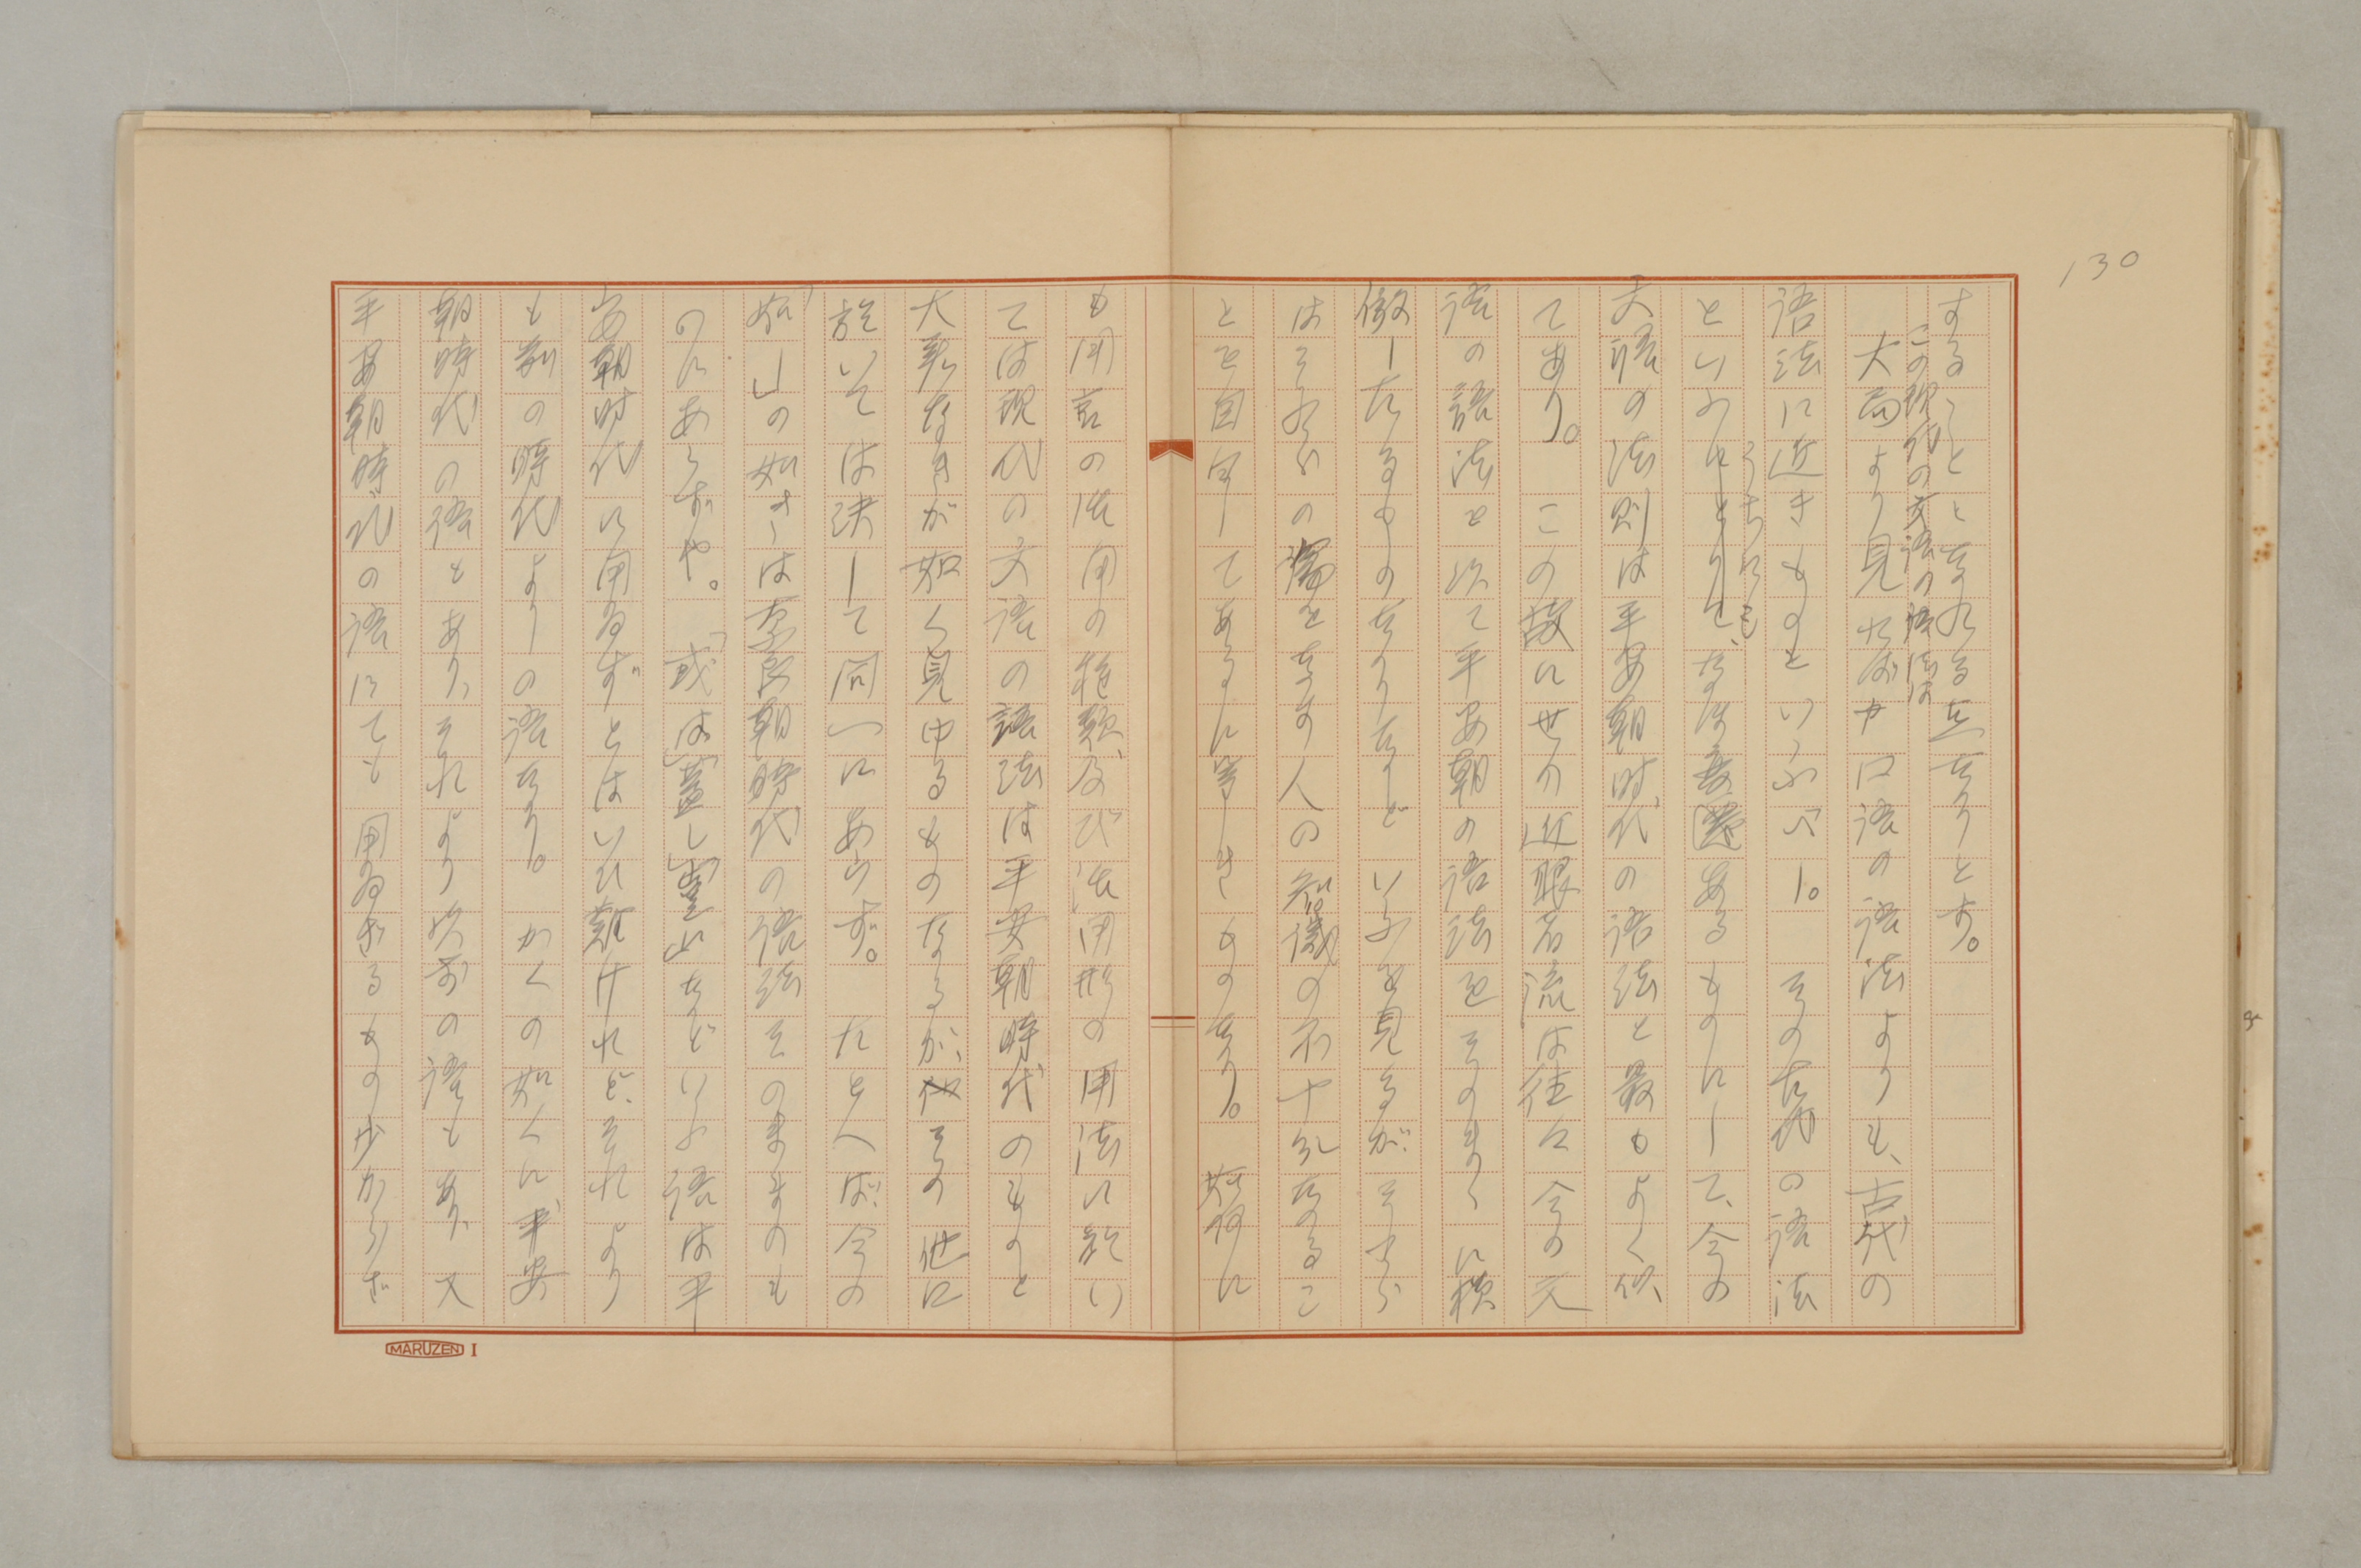 130
することゝなれる点なりとす。
この現代の文語の語法は
大局より見たばや口語の語法よりも、古代の
語法に近きものといふべし。その古代の語法
といふ
うちにも、なほ差異あるものにして、今の
文語の法則は平安朝時代の語法と最もよく似
てあり。この故に世の近眼者流は往々今の文
語の語法を以て平安朝の語法をそのまゝに模
倣したるものなりなど いふを見るが、そもそも
はそれらの論をなす人の知識の不十分なるこ
とを自白してあるに等しきものなり。 如何に
も用言の活用の種類及び活用形の用法に於い
ては現代の文語の語法は平安朝時代のものと
大差なきが如く見ゆるものなるが、その他に
於いては決して同一にあらず。たとへば、今の
「如し」の如きは奈良朝時代の語法そのまゝのも
のにあらずや。「或は」「蓋し」「豈に」などいふ語は平
安朝時代に用ゐずとはいひ難けれど、それより
も前の時代よりの語なり。かくの如くに平安
朝時代の語もあり、それより以前の語もあり、又
平安朝時代の語にても用ゐざるもの少からざ
MARUZEN I